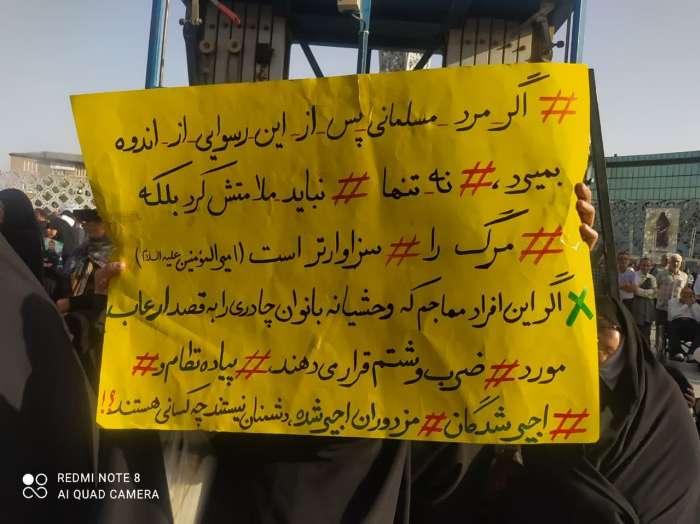 # اگر_مرد_مسلمانی_پس_از_این_رسوایی_از_اندوه
بمیرد، # نه_تنها # نباید ملامتش کرد بلکه
# مرگ را # سزاوارتر است (امیرالمؤمنین علیه السلام)
اگر این افراد مهاجم که وحشیانه بانوان چادری را به قصد ارعاب
مورد # ضرب و شتم قرار می دهند، # پیاده نظام و #
# اجیر شدگان # مزدوران اجیر شده، دشمنان نیستند چه کسانی هستند؟!
REDMI NOTE 8
AI QUAD CAMERA